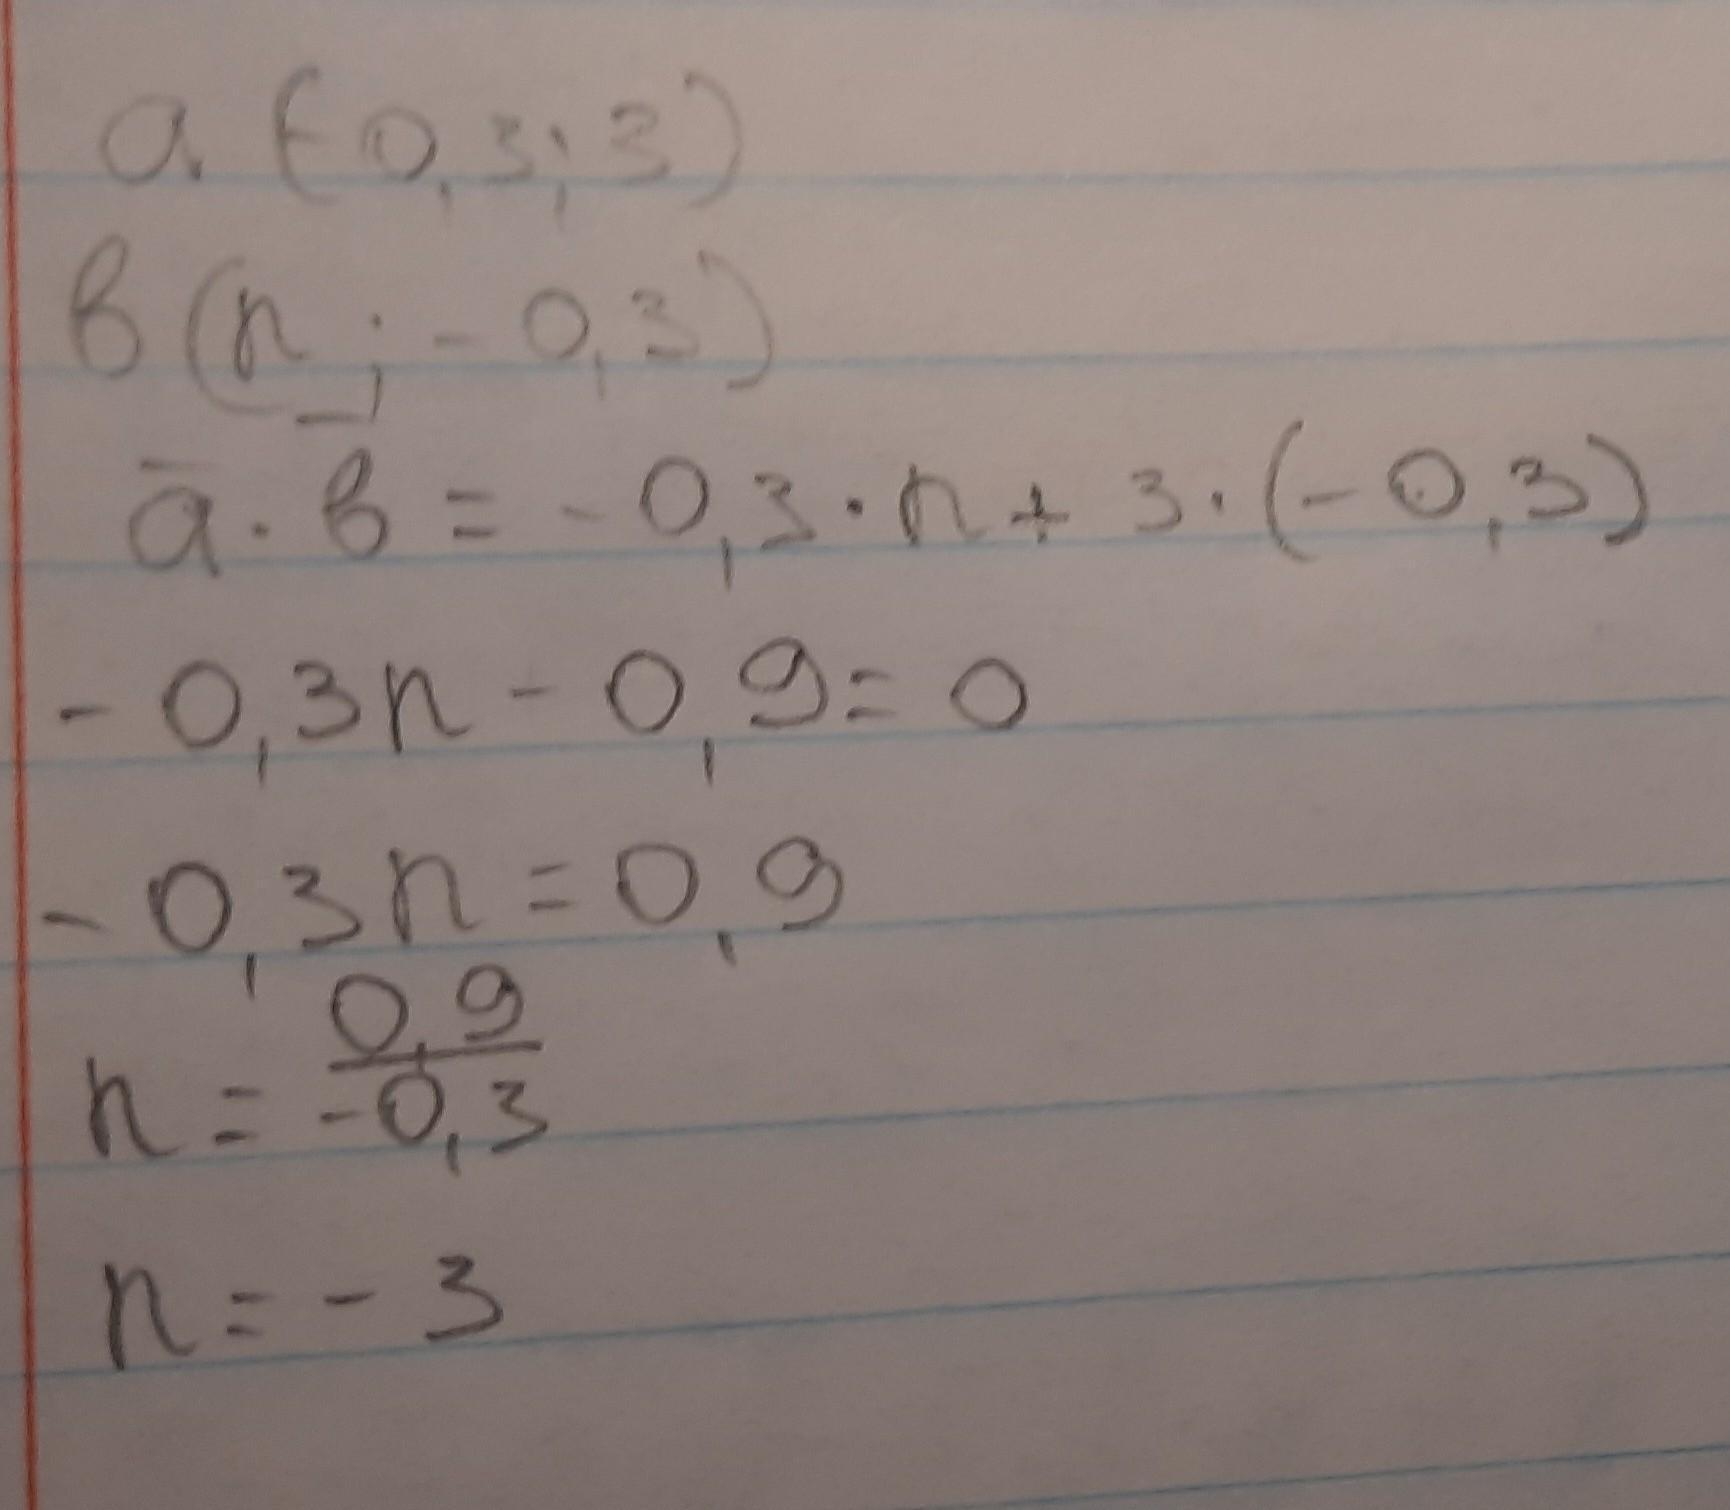 a (-0,3; 3)
в (n ; - 0,3)
a̅ · в = - 0,3 · n + 3 · (- 0,3)
- 0,3n - 0,9 = 0
- 0,3n = 0,9
n = 0,9 / -0,3
n = - 3